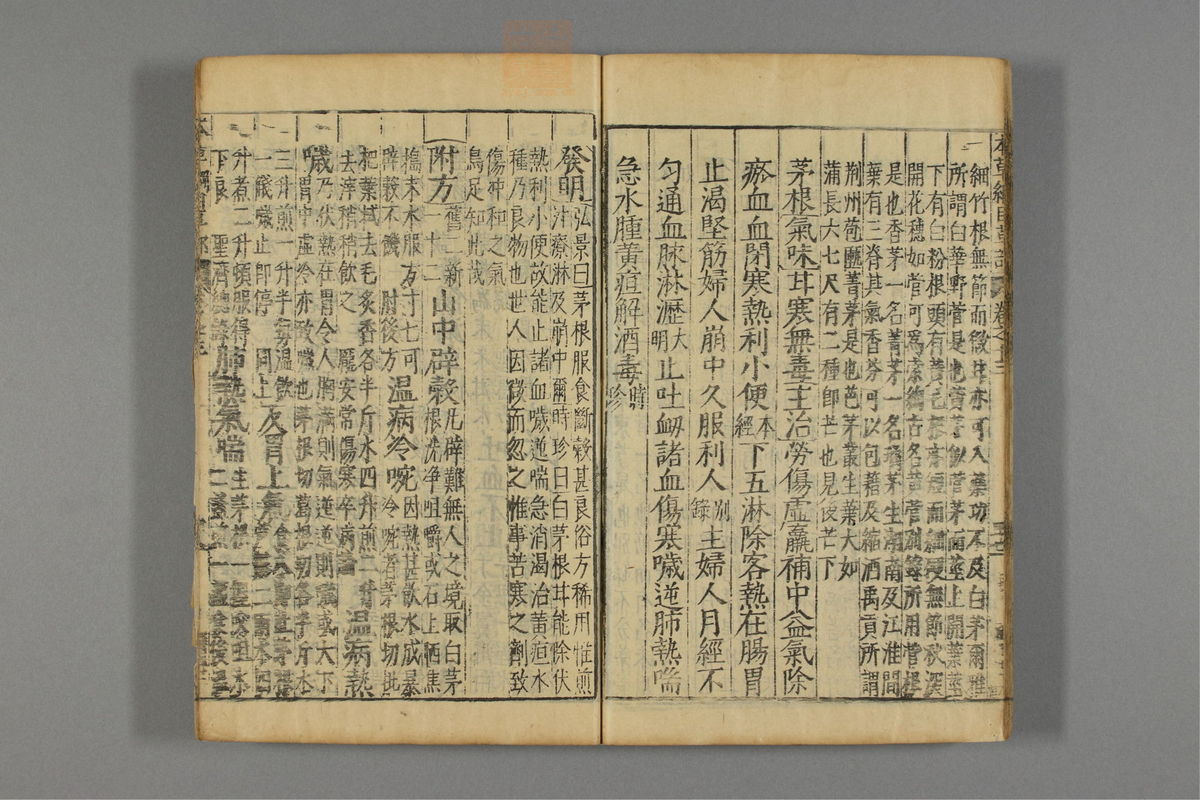 細竹根無節而微甘亦可入藥功不及白茅爾雅
所謂白華野菅是也菅茅似菅茅而莖上開葉莖
下有白粉根頭有黃毛根亦短而細硬無節秋深
開花穗如菅可爲索綯古名菅
是也香茅一名菁茅一名璚茅生湖南及江淮間
葉有三脊其氣香芬可以包藉及縮酒禹貢所謂
荆州苞匭菁茅是也芭茅叢生葉大如
蒲長六七尺有二種即芒也見後芒下
茅根氣味甘寒無毒主治勞傷虛羸補中益氣除
瘀血血閉寒熱利小便本經下五淋除客熱在腸胃
止渴堅筋婦人崩中久服利人別錄主婦人月經不
匀通血脉淋瀝大明止吐衂諸血傷寒噦逆肺熱喘
急水腫黃疸解酒毒時珍
發明弘景曰茅根服食斷穀甚良俗方稀用惟煎
汁療淋及崩中爾時珍曰白茅根甘能除伏
熱利小便故能止諸血噦逆喘急消渴治黃疸水
種乃良物也世人因微而忽之惟事苦寒之劑致
傷沖和之氣
烏足知此哉
附方舊二新十二山中辟穀凡辟難無人之境取白茅
根洗淨咀嚼或石上晒焦
搗末水服方寸七可
辟穀不饑肘後方温病冷啘因熱甚飲水成暴
冷啘者茅根切枇
杷葉拭去毛炙香各半斤水四升煎二升
去滓稍稍飲之龐安常傷寒卒病論温病熱
噦乃伏熱在胃令人胸滿則氣逆逆則噦或大下
胃中虛冷亦致噦也茅根切葛根切各半斤水
三升煎一升半每温飲
一盞噦止即停同上反胃上氣
升煮二升頓服得
下良聖濟總錄肺熱氣喘生茅根一